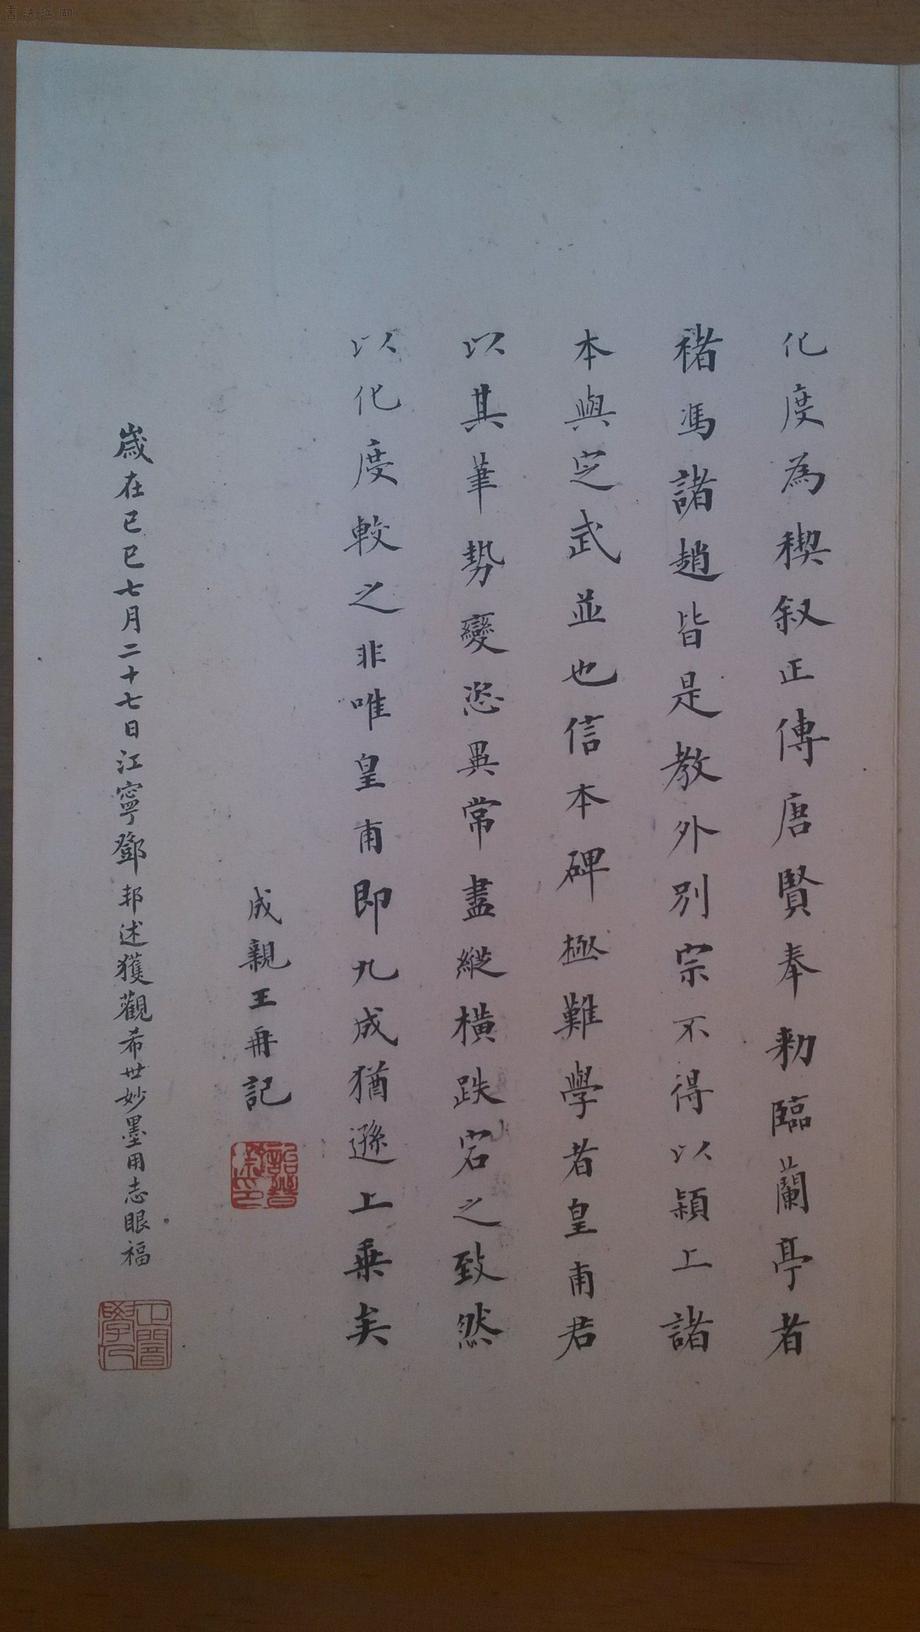 化度為稧叙正傳唐賢奉勑臨蘭亭者
褚馮諸趙皆是教外別宗不得以潁上諸
本與定武並也信本碑極難學者皇甫君
以其筆勢變恣異常盡縱橫跌宕之致然
以化度較之非唯皇甫即九成猶遜上乗矣
成親王再記
詒晉齋印
歲在己巳七月二十七日江寧鄧邦述獲觀希世妙墨用志眼福